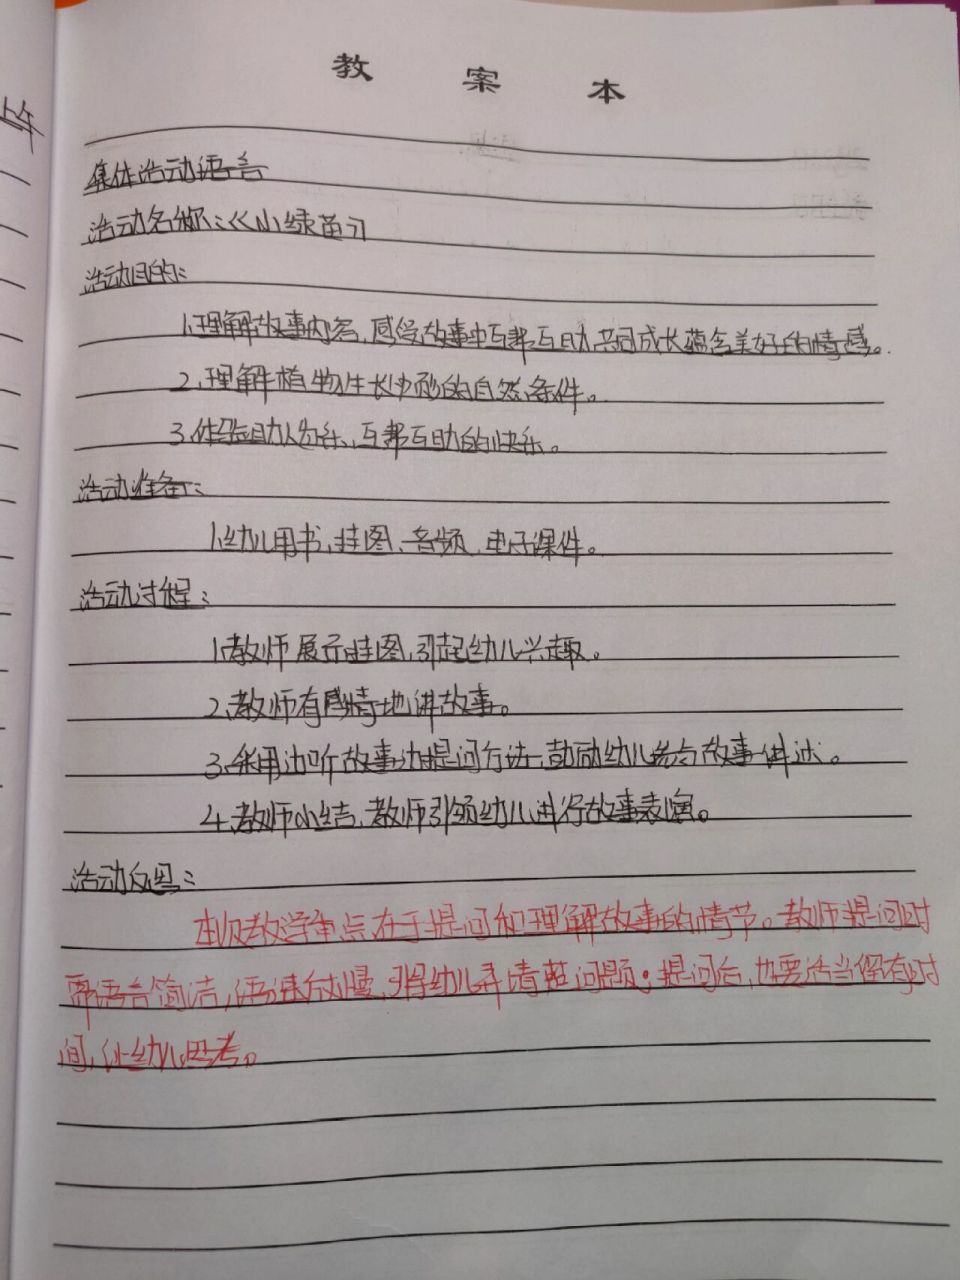 上午
教案本
集体活动语言
活动名称:《小绿苗》
活动目的:
1.理解故事内容,感受故事中互帮互助、共同成长蕴含美好的情感。
2.理解植物生长必须的自然条件。
3.体验助人为乐、互帮互助的快乐。
活动准备:
1.幼儿用书、挂图、音频、电子课件。
活动过程:
1.教师展示挂图,引起幼儿兴趣。
2.教师有感情地讲故事。
3.采用边听故事边提问方法,鼓励幼儿参与故事讲述。
4.教师小结,教师引领幼儿进行故事表演。
活动反思:
本次教学重点在于提问和理解故事的情节。教师提问时
需语言简洁,语速放慢,引得幼儿弄清楚问题;提问后,也要适当保留时
间,让幼儿思考。